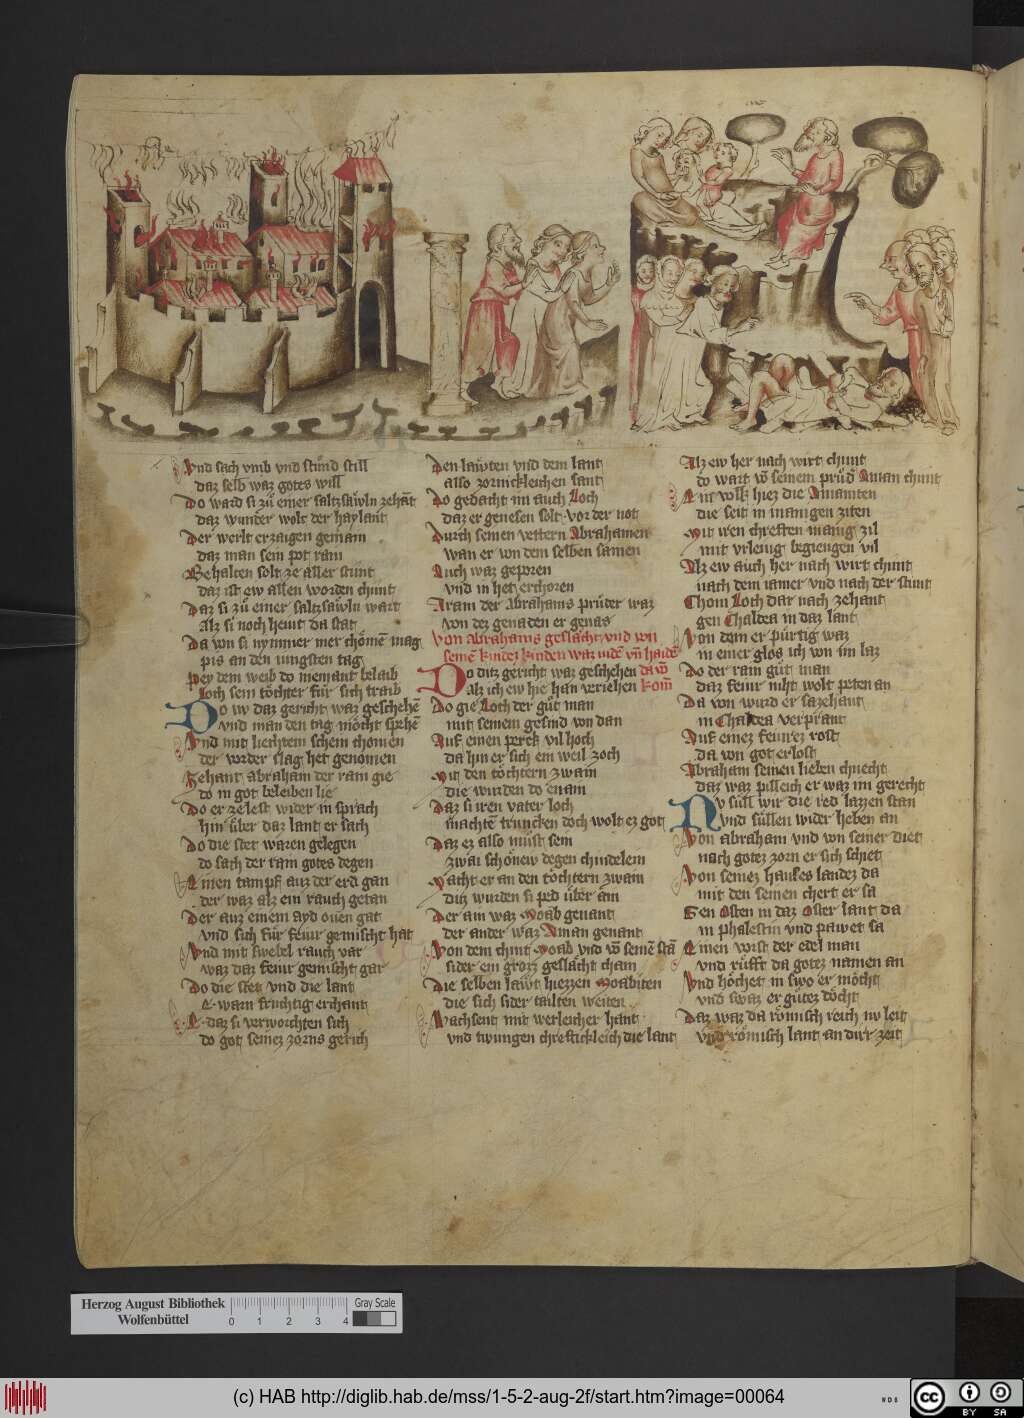 Vnd sach vmb vnd stund still
daz selb waz gotes will
Do ward si zů einer saltzsäwln zehāt
daz wunder wolt der haylant
Der werlt erzaigen gemain
daz man sein pot rain
Behalten solt ze aller stunt
daz ist ew allen worden chunt
Daz si zů einer saltzsäwln wart
Alz si noch hewt da stat
Da von si nymmer mer chömē mag
pis an den iungsten tag
Pey dem weib do niemant belaib
Loch sein töchter für sich traib
Do nv daz gericht waz geschehē
vnd man den tag möcht spehē
Vnd mit liechtem schein chomen
der vorder slag het genomen
Zehant abraham der rain gie
do in got beleiben lie
Do er ze lest wider in sprach
hin über daz lant er sach
Do die stet waren gelegen
do sach der rain gotes degen
Einen tampf auz der erd gan
der waz alz ein rauch getan
Der auz einem ayd ouen gat
vnd sich für feuir gemischt hat
Vnd mit swebel rauch var
waz daz feuir gemischt gar
Do die stet vnd die lant
E warn fruchtig erchant
E daz si verworchten sich
do got seinez zorns gerich
Den lawten vnd dem lant
also zornickleichen sant
Do gedacht im auch Loch
daz er genesen solt vor der not
Durch seinen vettern Abrahamen
wan er von dem selben samen
Auch waz geporen
vnd in het erchoren
Aram der Abrahams průder waz
von dez genaden er genas
Von Abrahams geslächt vnd von
seinē kindez kinden waz iudē vn̄ haidē
Do ditz gericht waz geschehen da vō
Alz ich ew hie han veriehen kom̄
Do gie Loch der gůt man
mit seinem gesind von dan
Auf einen perck vil hoch
da hin er sich ein weil zoch
Mit den töchtern zwain
die wurden do enain
Daz si iren vater loch
machtē truncken doch wolt ez got
Daz ez also můst sein
zwai schönew degen chindelein
Macht er an den töchtern zwain
ditz wurden si ped über ain
Der ain waz Moab genant
der ander waz Aman genant
Von dem chint Moab vnd vō seinē stā
sider ein grozz geslächt cham
Die selben läwt hiezzen Moabiten
die sich sider tailten weiten
Wachsent mit werleicher hant
vnd twungen chreftickleich die lant
Alz ew her nach wirt chunt
do wart vō seinem průd Aman chunt
Ein volk hiez die Amaniten
die seit in manigen ziten
Mit iren chreften manig zil
mit vrleug begiengen vil
Alz ew auch her nach wirt chunt
nach dem iamer vnd nach der stunt
Chom Loch dar nach zehant
gen Chaldea in daz lant
Von dem er pürtig waz
in einer glos ich von im laz
Do der rain gůt man
daz feuir niht wolt peten an
Da von wurd er sazehant
in Chaldea verprant
Auf einez feurez rost
da von got erlost
Abraham seinen lieben chnecht
daz waz pilleich er waz im gerecht
Nv süll wir die red lazzen stan
vnd süllen wider heben an
Von abraham vnd von seiner diet
nach gotez zorn er sich schiet
Von seinez hauses landez da
mit den seinen chert er sa
Gen Osten in daz Oster lant da
in Phalestin vnd pawet sa
Einen vorst der edel man
vnd rüfft da gotez namen an
Vnd höchet in swo er möcht
vnd swaz er gůtez döcht
Daz waz da römisch reich nv leit
vnd römisch lant an dirr zeit
Herzog August Bibliothek
Wolfenbüttel
Gray Scale
0 1 2 3 4
(c) HAB http://diglib.hab.de/mss/1-5-2-aug-2f/start.htm?image=00064
WDB
cc BY SA